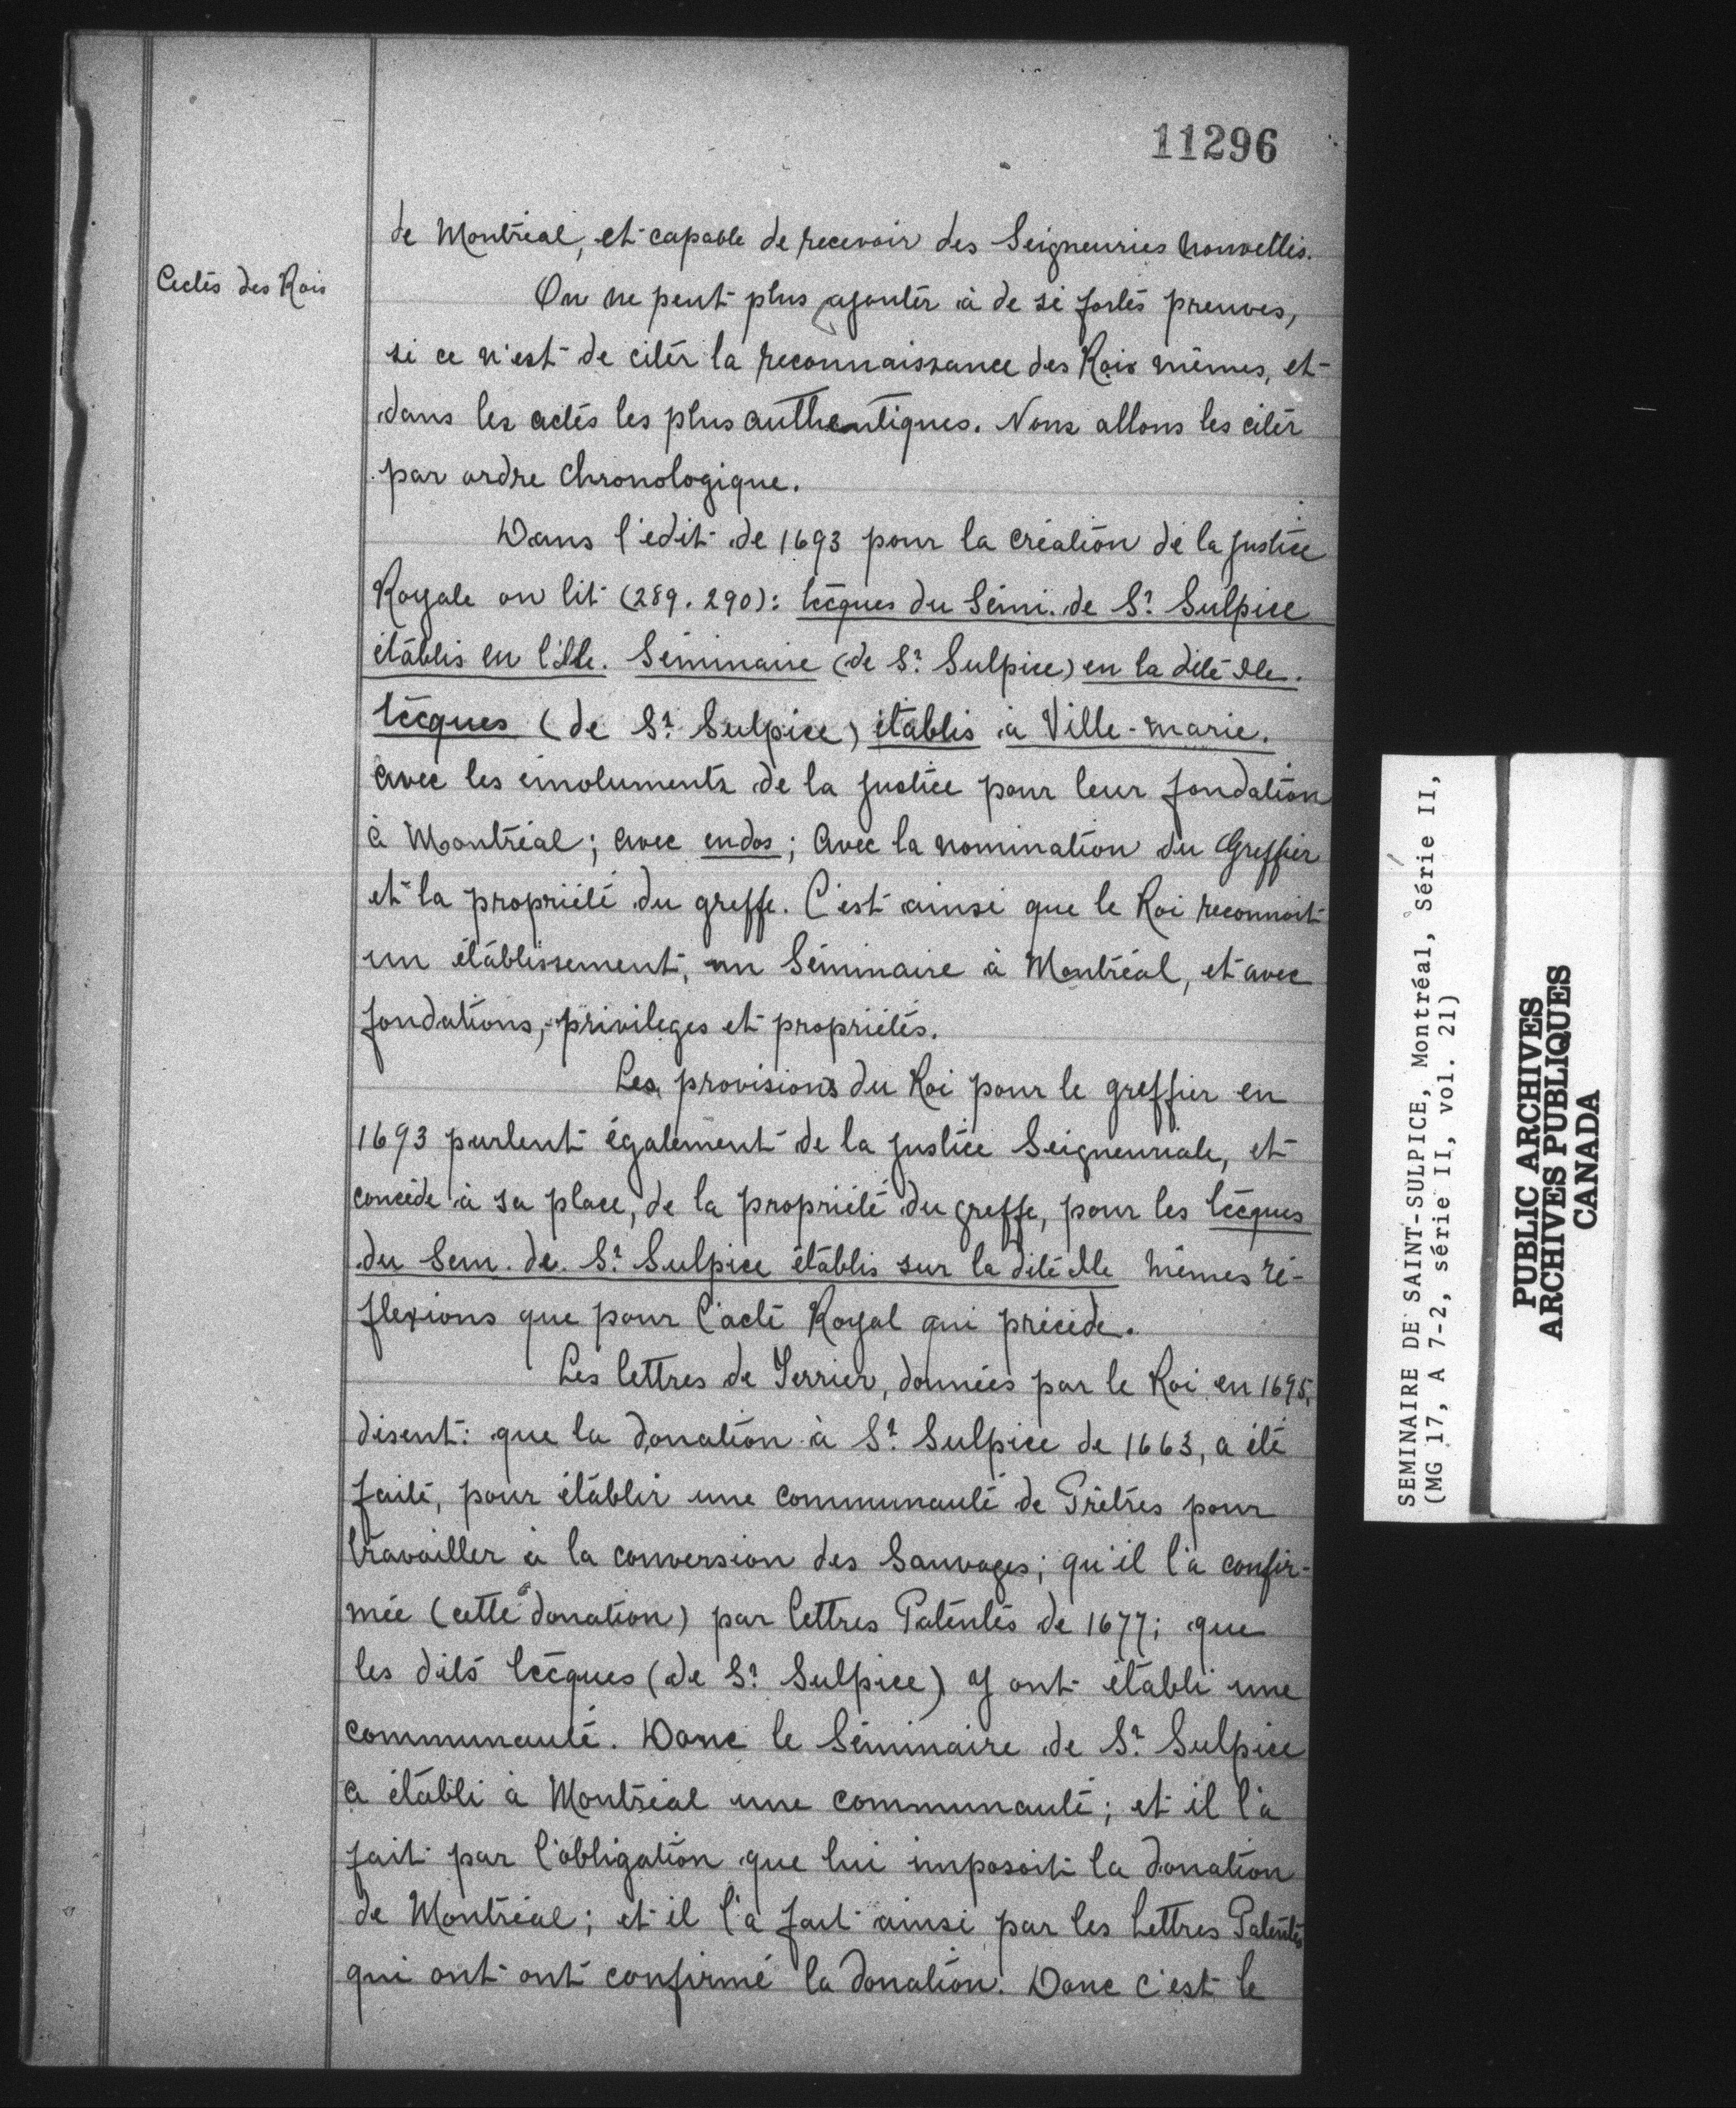 11296
de Montréal, et capable de recevoir des Seigneuries nouvelles.
Actes des Rois
On ne peut plus ajouter à de si fortes preuves,
si ce n'est de citer la reconnaissance des Rois mêmes, et
dans les actes les plus authentiques. Nous allons les citer
par ordre chronologique.
Dans l'edit de 1693 pour la création de la justice
Royale on lit (289.290): Eccques du Sémi. de St Sulpice
établis en l'Ile. Séminaire (de St Sulpice) en la dite Ile.
Eccques (de St Sulpice) établis à Ville-marie.
avec les émoluments de la justice pour leur fondation
à Montréal; avec endos; avec la nomination du Greffier
et la propriété du greffe. C'est ainsi que le Roi reconnoit
un établissement, un Séminaire à Montréal, et avec
fondations, privileges et propriétés.
Les provisions du Roi pour le greffier en
1693 parlent également de la justice Seigneuriale, et
concède à sa place, de la propriété du greffe, pour les Eccques
du Sem. de St Sulpice établis sur la dite Ile mêmes ré-
flexions que pour l'acte Royal qui précède.
Les lettres de Terrier, données par le Roi en 1695,
disent: que la donation à St Sulpice de 1663, a été
faite, pour établir une communauté de Prêtres pour
travailler à la conversion des Sauvages; qu'il l'a confir-
mée (cette donation) par lettres Patentes de 1677; que
les dits Eccques (de St Sulpice) y ont établi une
communauté. Donc le Séminaire de St Sulpice
a établi à Montréal une communauté; et il l'a
fait par l'obligation que lui imposoit la donation
de Montréal; et il l'a fait ainsi par les Lettres Patentes
qui ont ont confirmé la donation. Donc c'est le
SEMINAIRE DE SAINT-SULPICE, Montréal, Série II,
(MG 17, A 7-2, série II, vol. 21)
PUBLIC ARCHIVES
ARCHIVES PUBLIQUES
CANADA